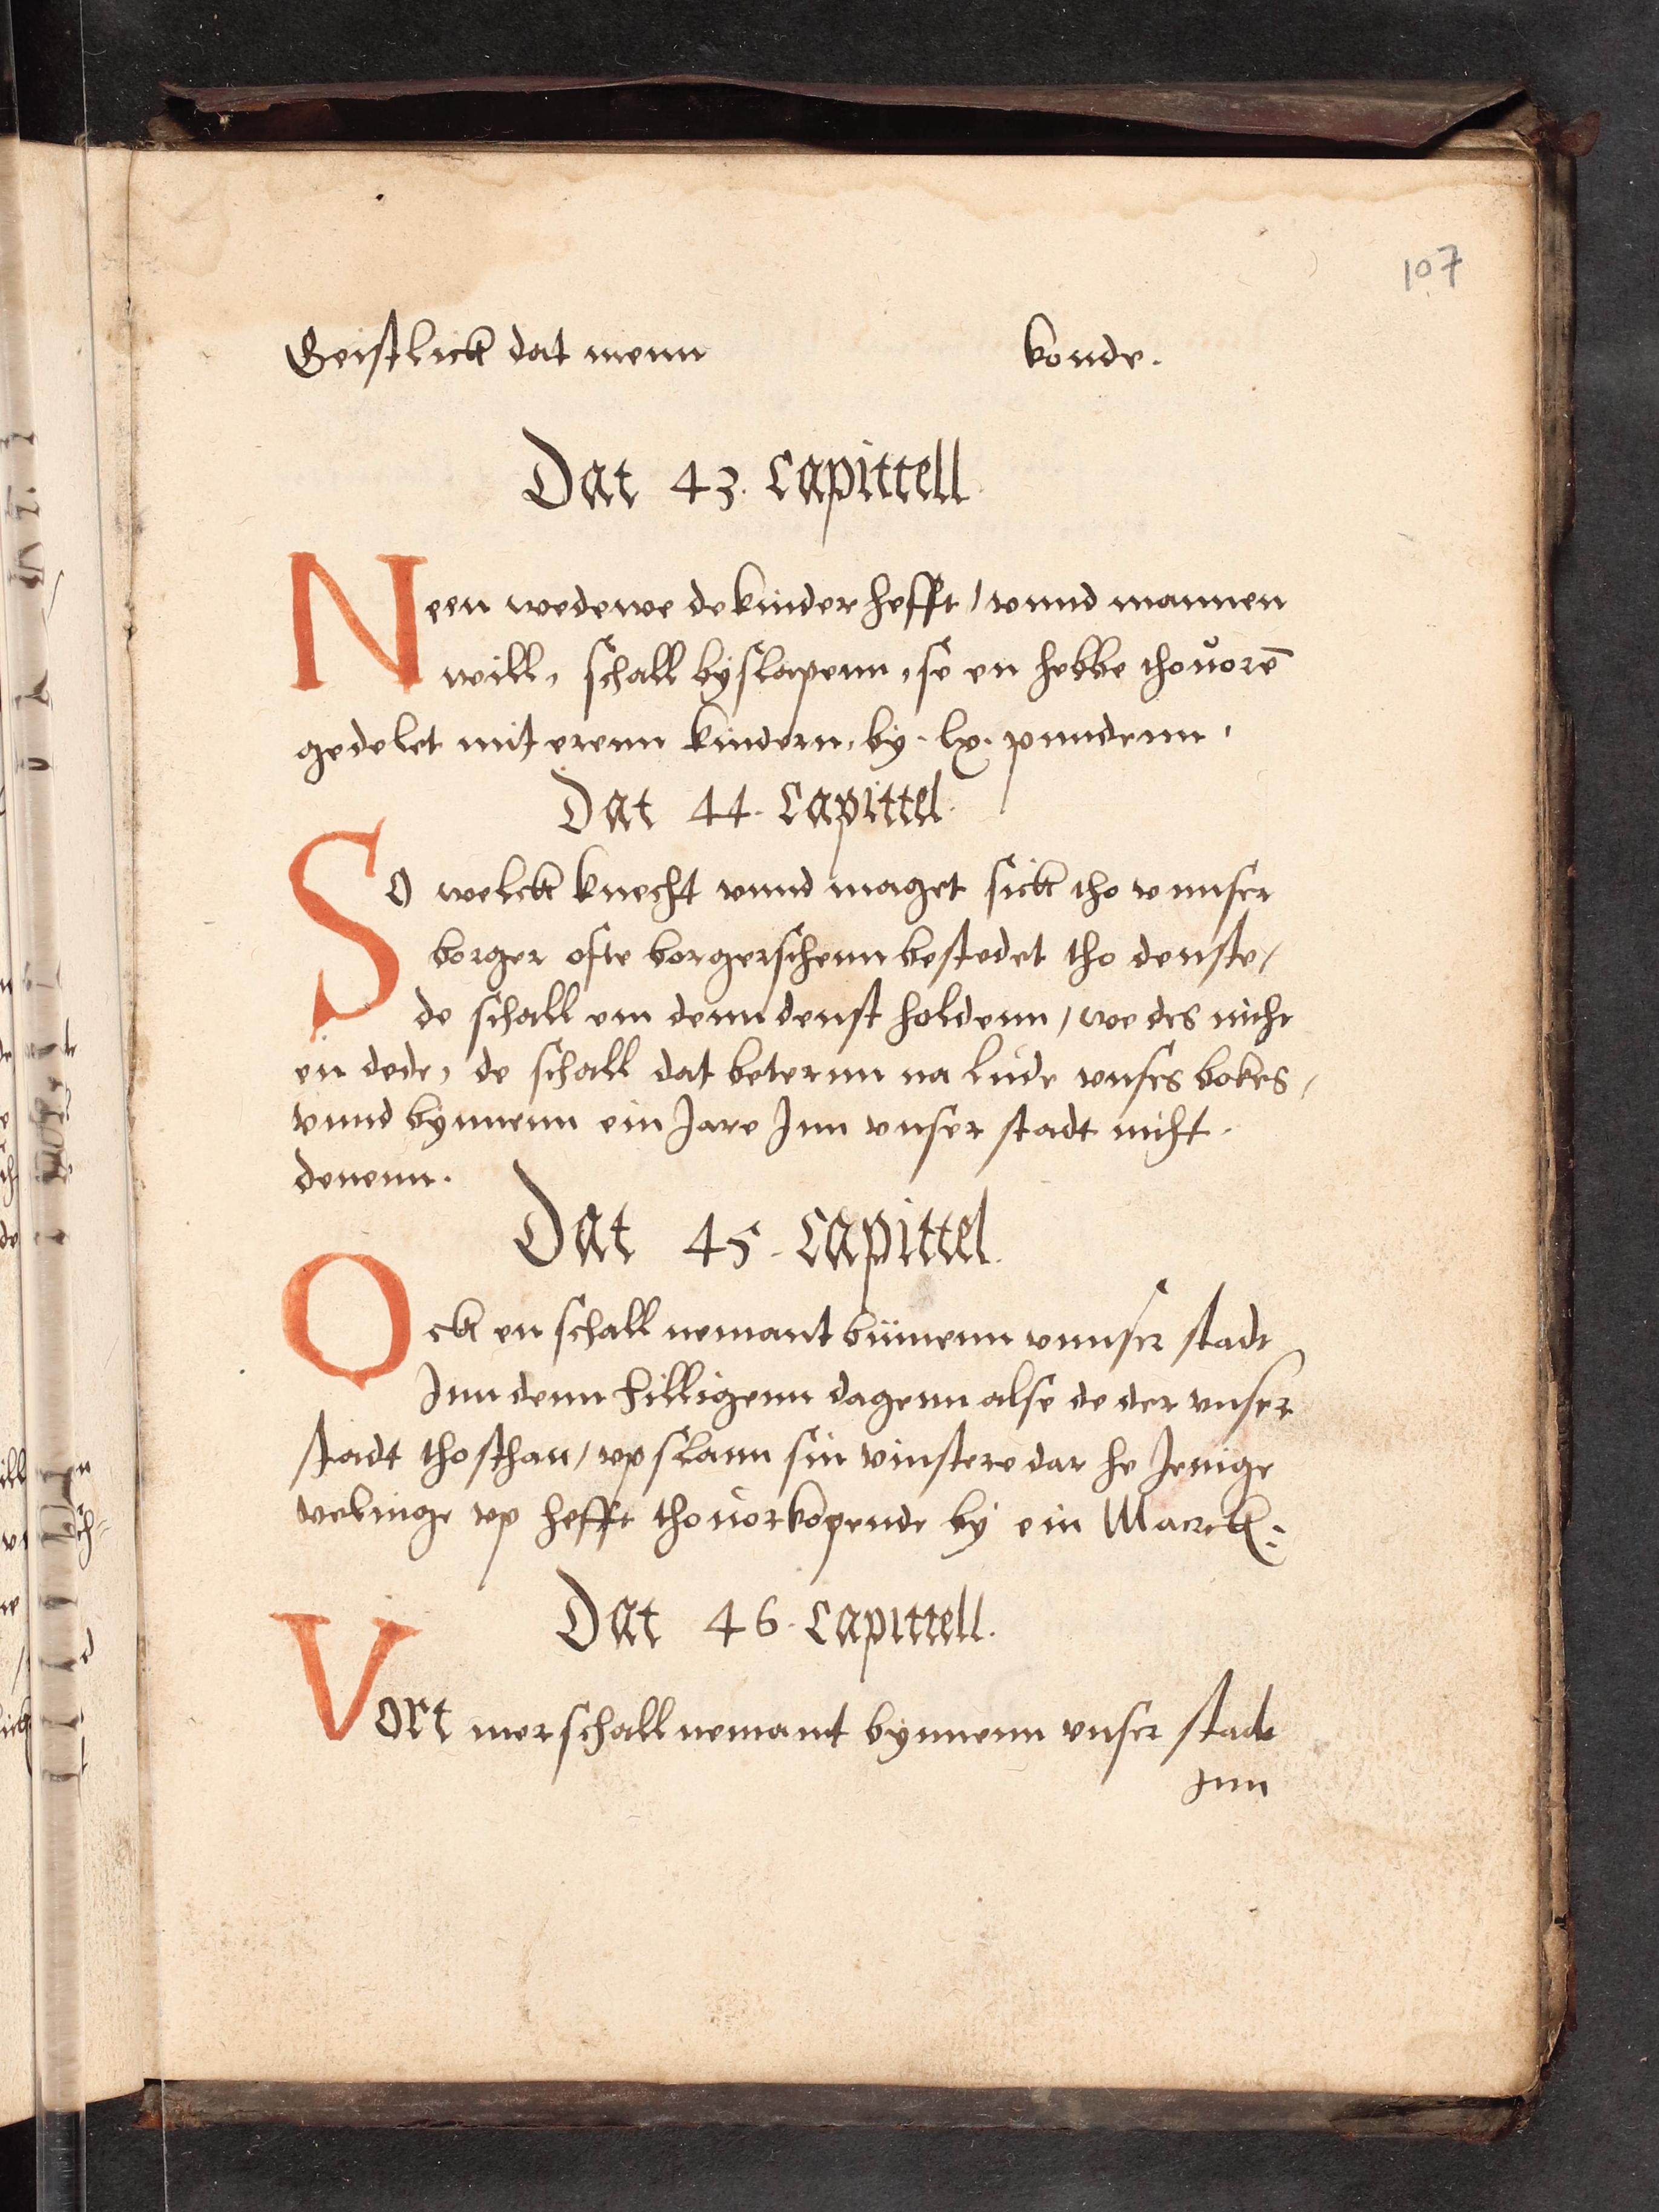 107
Geistlick dat menn konde.
Dat 43. Capittell
Neen wedewe de kinder hefft / vnnd mannen
will, schall byslapenn, se en hebbe thouorē
gedelet mit erenn kindern, by . lx. pundenn,
Dat 44. Capittel.
So welck knecht vnnd maget sick tho vnnser
borger ofte borgerschenn bestedet tho denste /
de schall em denn denst holdenn / we des nicht
en dede, de schall dat beternn na lude vnses bokes,
vnnd bynnenn ein Jare Jnn vnser stadt nicht.
denenn.
Dat 45. Capittel.
Ock en schall nemant binnenn vnnser stadt
Jnn denn hilligenn dagenn alse de der vnser
stadt tho sthan / vp slann sin vinstere dar he Jenige
velinge vp hefft tho uorkopende by ein Marck.
Dat 46. Capittell.
Vort mer schall nemant bynnenn vnser stadt
Jnn